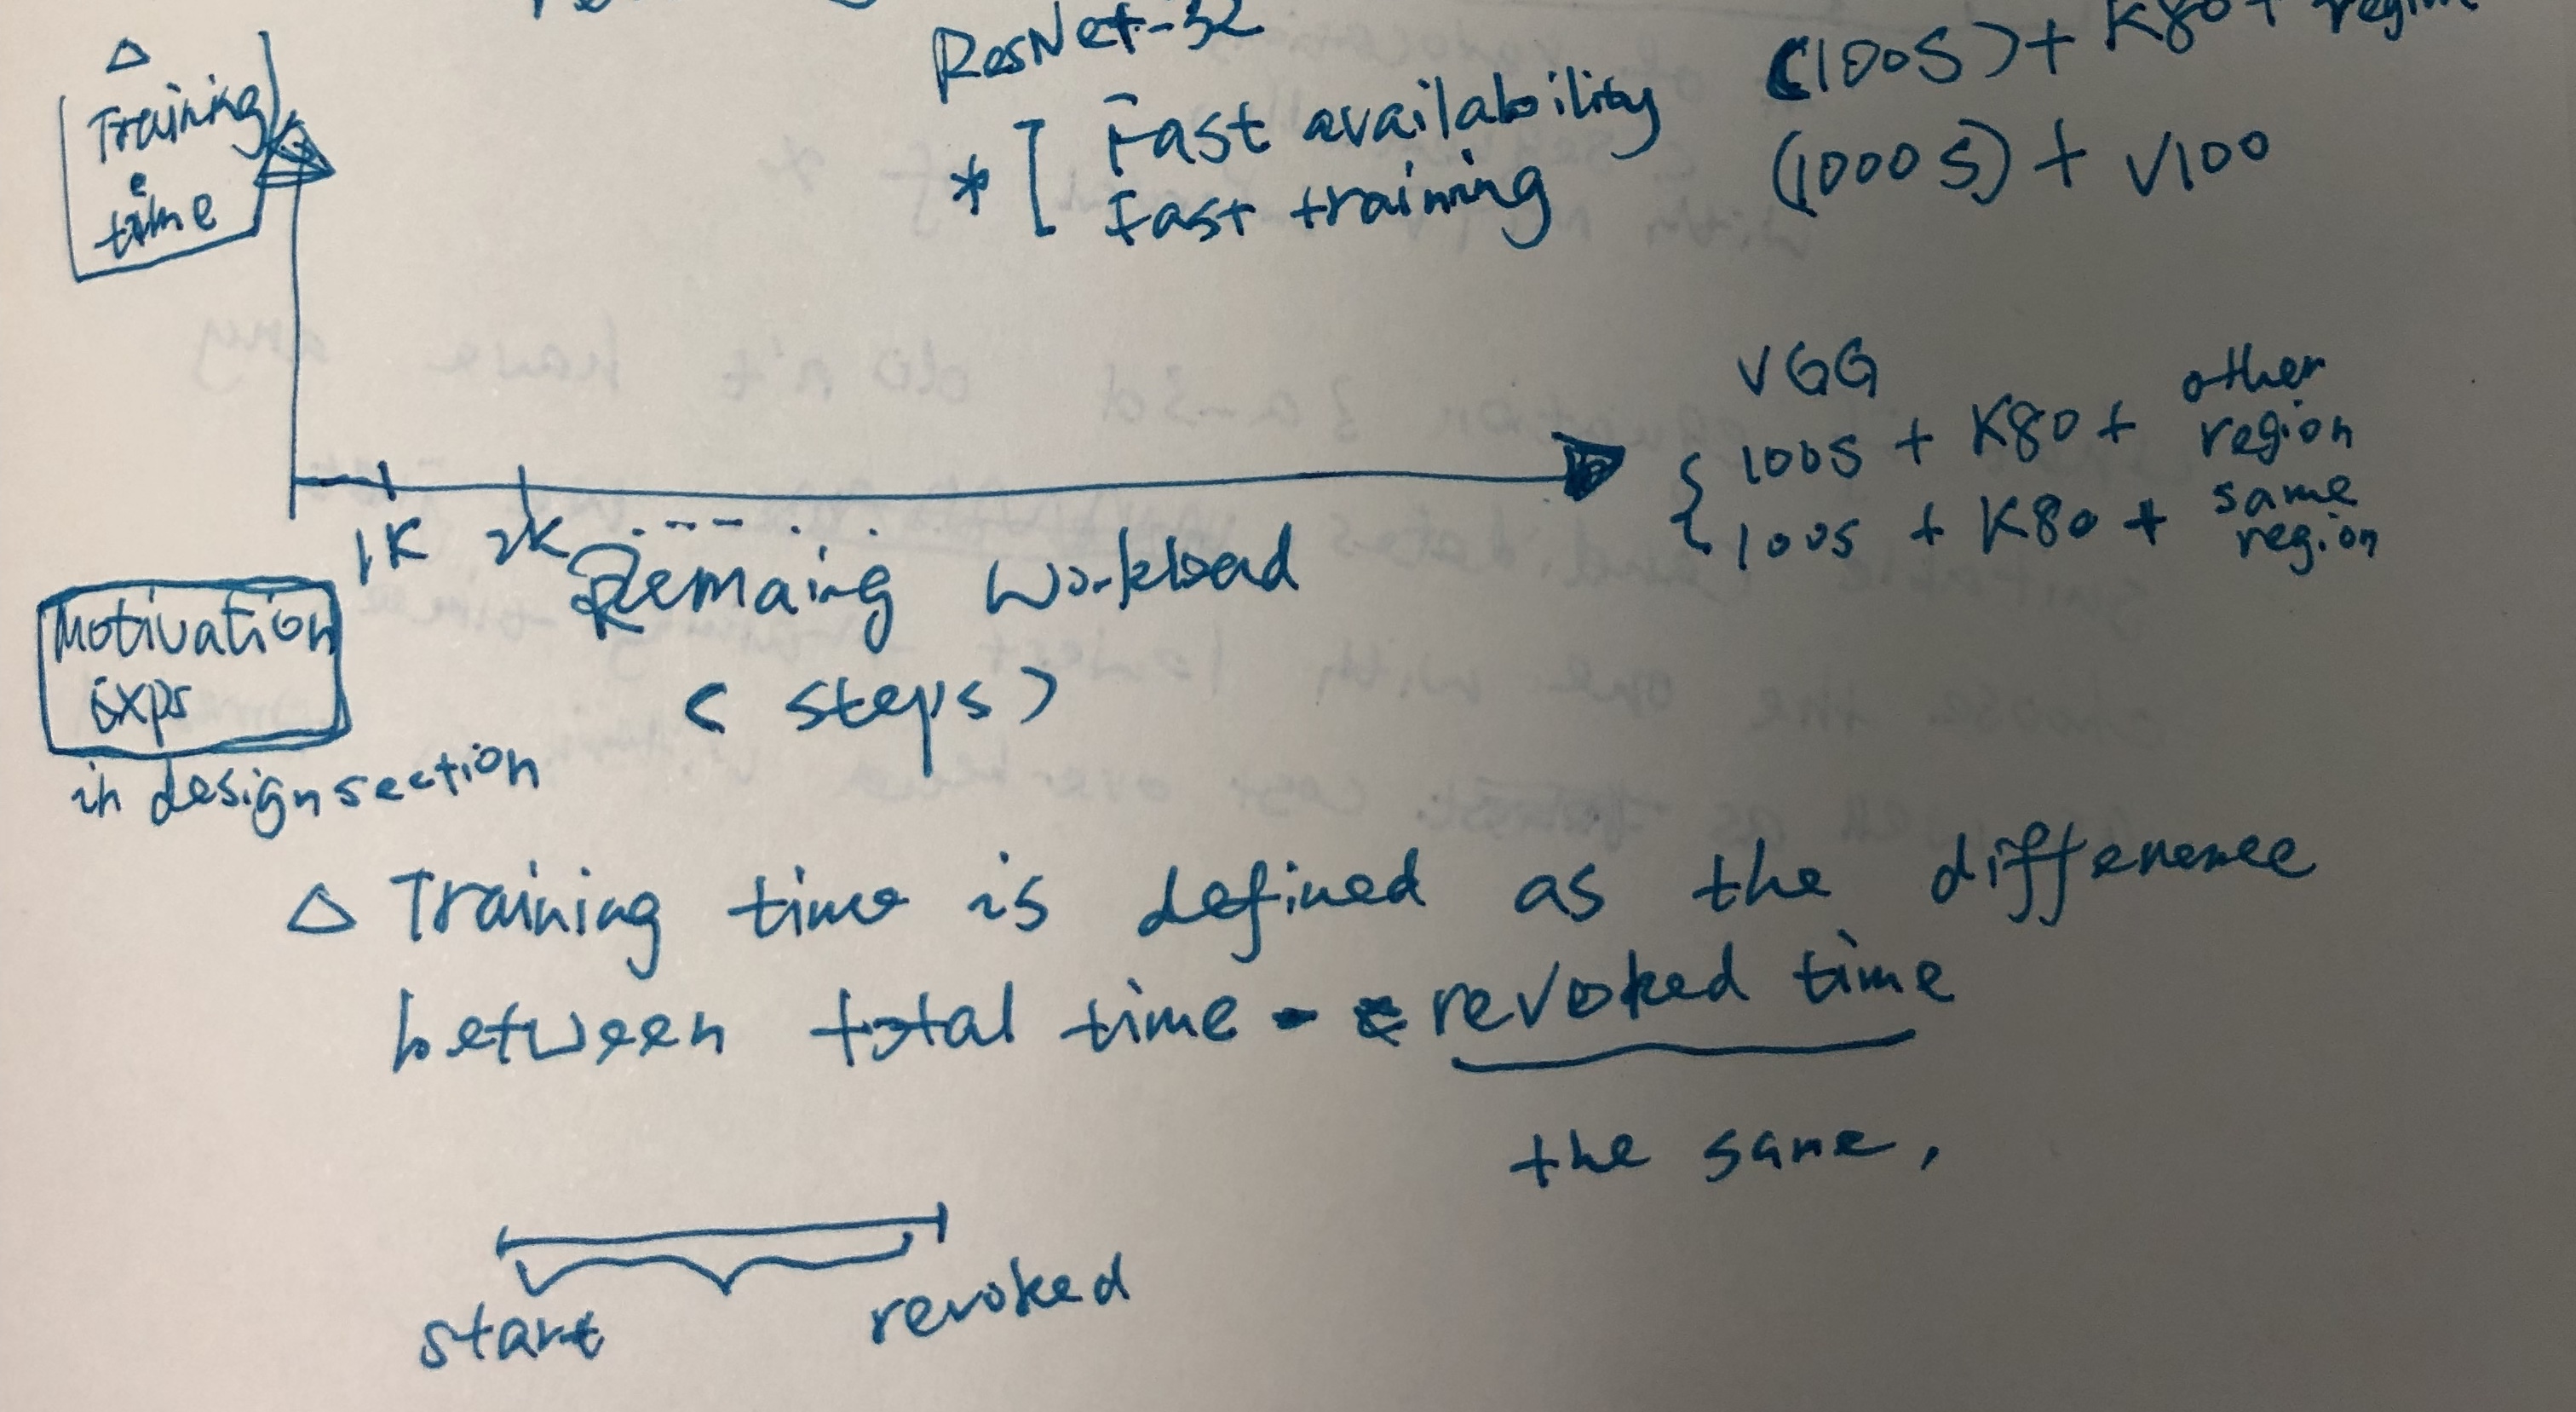 ResNet-32
(100S) + K80 +
* [ Fast availability
Fast training
(1000S) + V100
△
Training
time
VGG
{ 100S + K80 + other region
100S + K80 + same region
1K 2K .---...
Remaing Workload
(steps)
Motivation
Exps
in design section
△ Training time is defined as the difference
between total time - revoked time
the same,
start
revoked